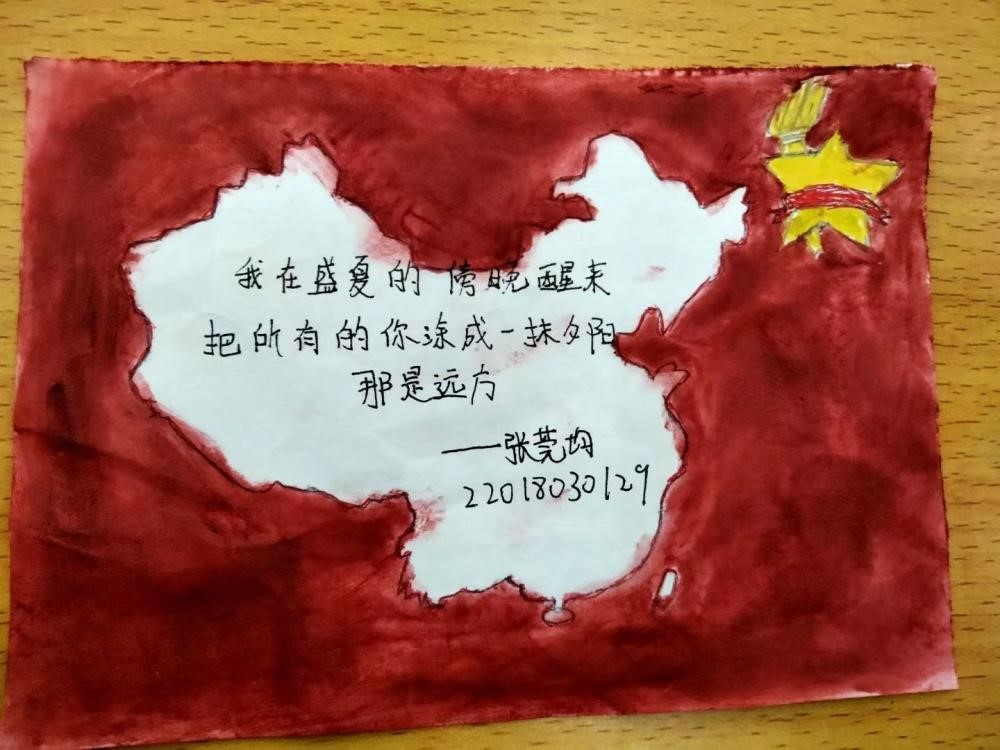 我在盛夏的傍晚醒来
把所有的你涂成一抹夕阳
那是远方
——张莞均
22018030129